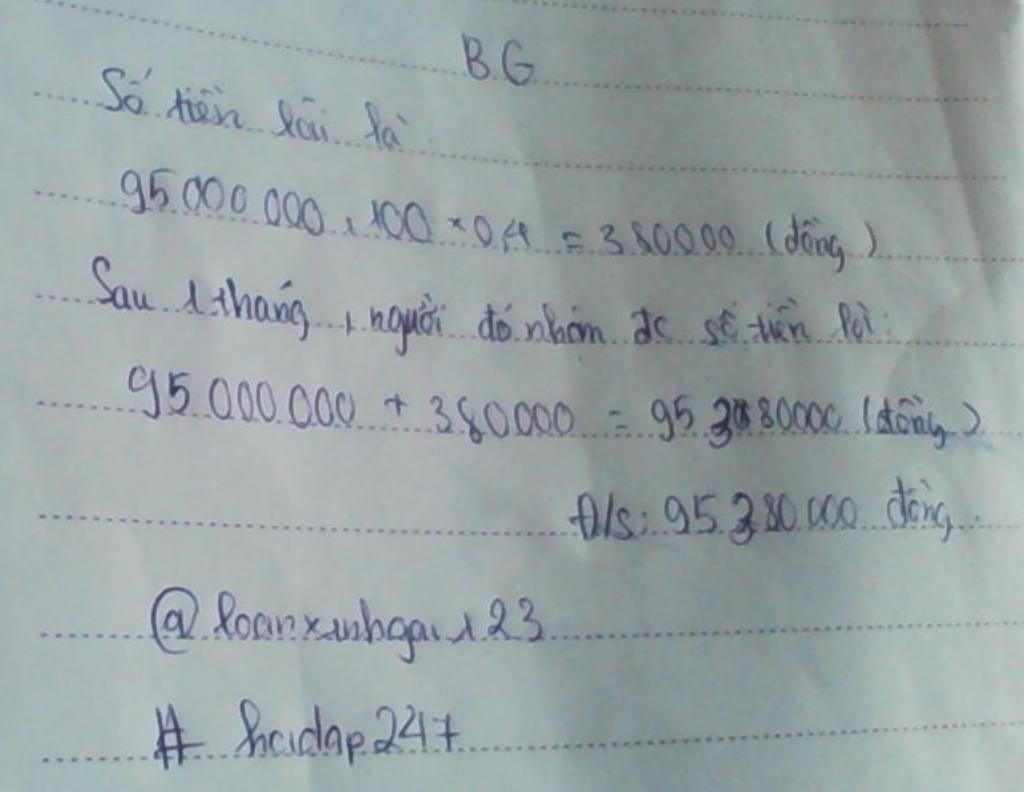 BG
Số tiền lãi là
95 000 000 : 100 × 0,4 = 380000 (đồng)
Sau 1 tháng, người đó nhận đc số tiền là:
95 000 000 + 380000 = 95 380000 (đồng)
Đ/s: 95 380 000 đồng.
@ loanxinhgai123
# hoidap247